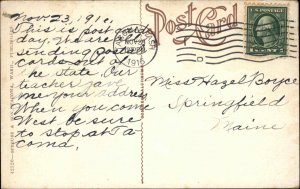 Nov 23, 1916.
This is post card
day. We are
sending post
cards out of
the state. Our
teacher gave
me your address.
When you come
West be sure
to stop at Ta-
coma.
Post Card
1916
Miss Hazel Boyce
Springfield
Maine